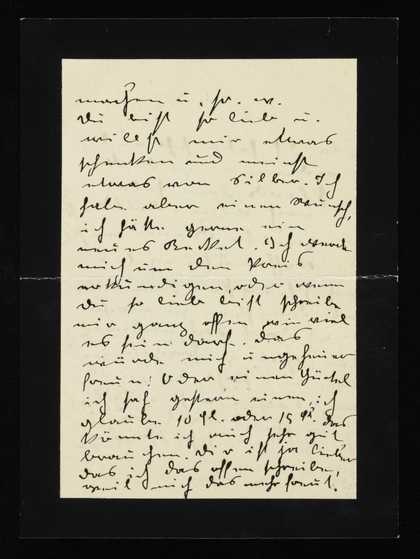 machen u. so. w.
Du bist so lieb u.
willst mir etwas
schenken und meinst
etwas von Silber. Ich
habe aber einen Wunsch,
ich hätte gerne ein
neues Jacket. Ich werde
mich um den Preis
erkundigen, oder wenn
Du so lieb bist schreibe
mir ganz offen wie viel
es sein darf. Das
würde mich ungeheuer
freuen! Oder einen Gürtel
ich sah gestern einen, ich
glaube 10 fl. oder 15 fl. das
könnte ich auch sehr gut
brauchen. Dir ist ja lieber
das ich das offen schreibe,
weil mich das mehr freut!